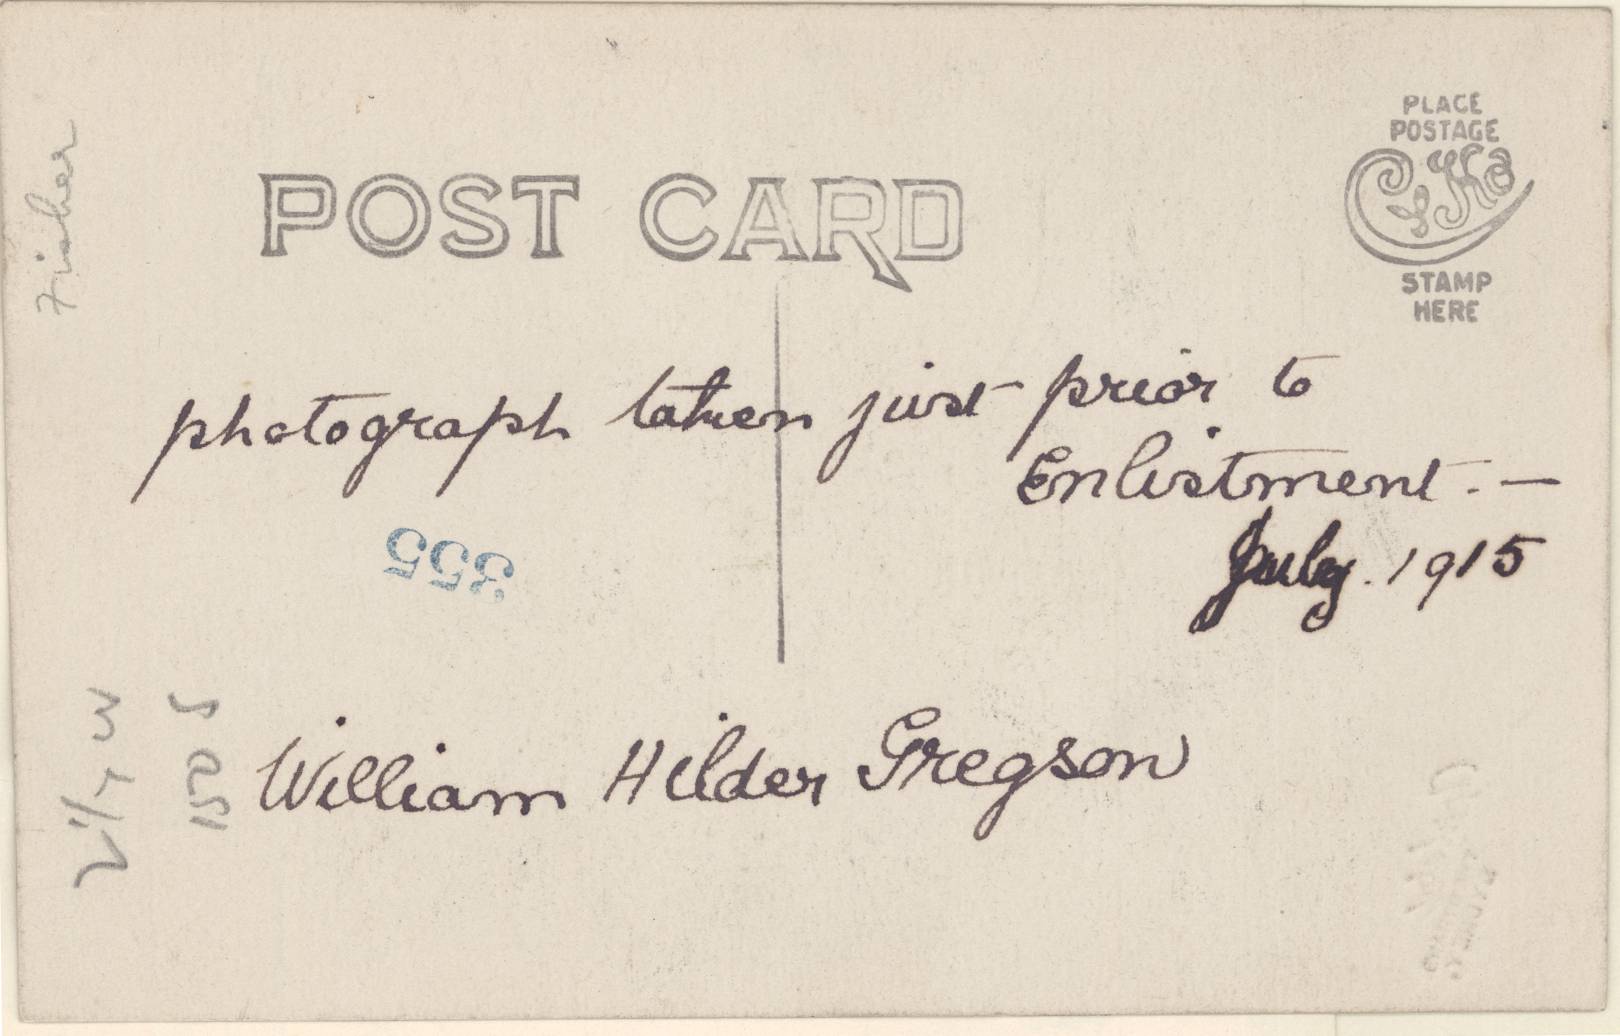 Fisher
POST CARD
PLACE
POSTAGE
STAMP
HERE
photograph taken just prior to
Enlistment. —
July. 1915
355
William Hilder Gregson